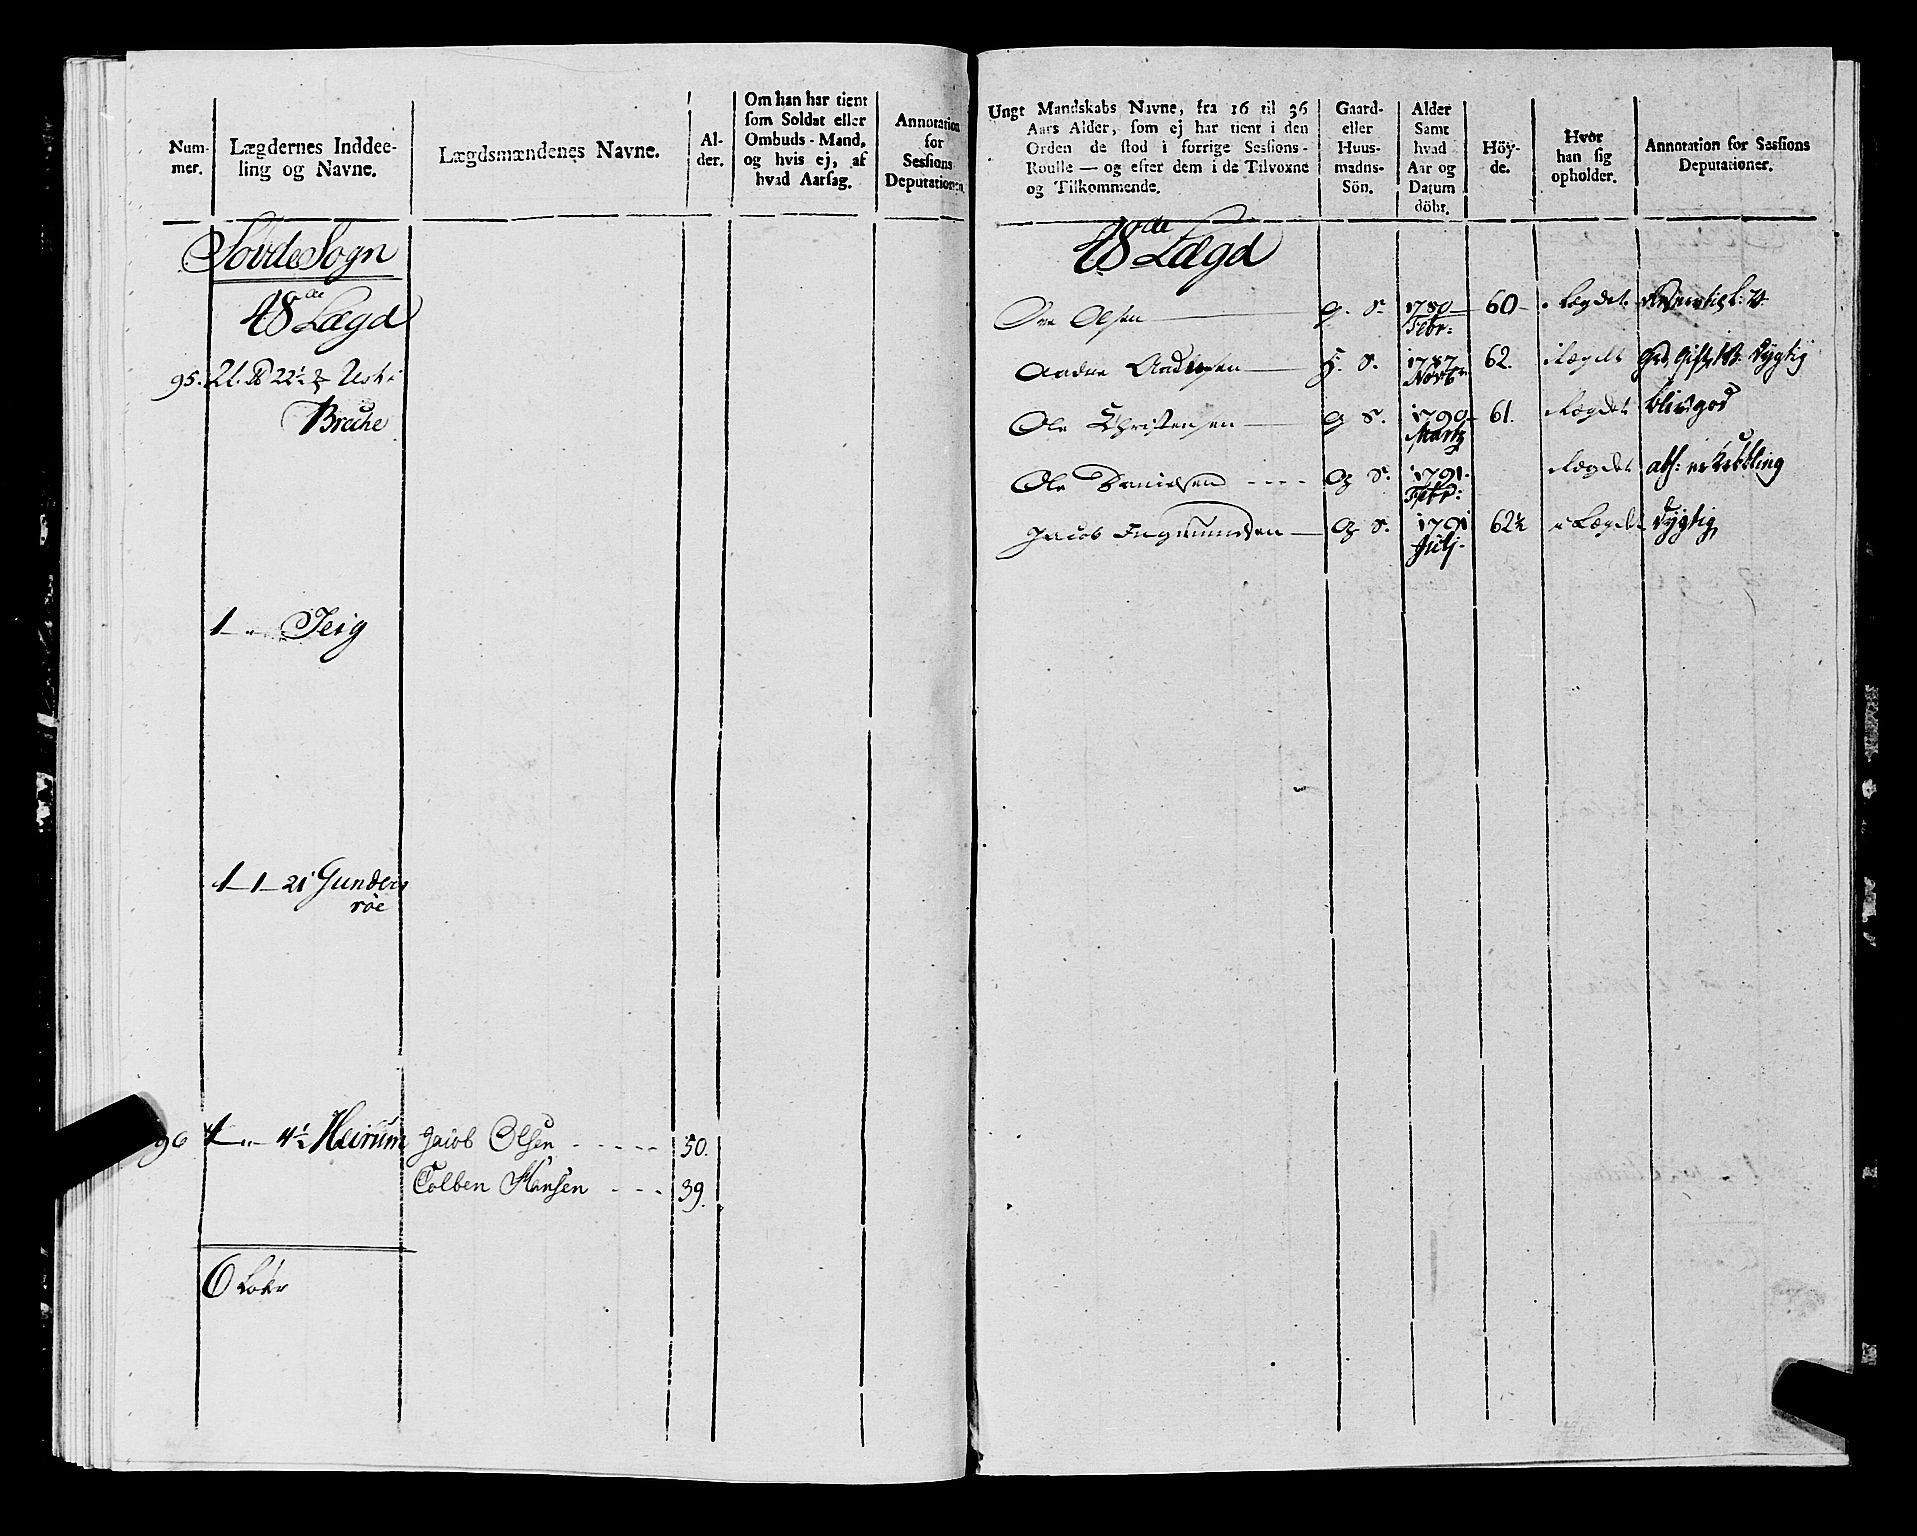 Num-
mer.
Lægdernes Inddee-
ling og Navne.
Lægdsmændenes Navne.
Al-
der.
Om han har tient
som Soldat eller
Ombuds-Mand,
og hvis ej, af
hvad Aarsag.
Annotation
for
Sessions
Deputationen.
Sovde Sogn
48de Lægd
95. 2 1.
Breche
1 — " — Teig
1 — 1 — 21 Gunders
röe
96 1 — " — 4½ Heirum Jacob Olsen - - - - - 50.
Tolben Hansen - - - 39.
6
Ungt Mandskabs Navne, fra 16 til 36
Aars Alder, som ej har tient i den
Orden de stod i forrige Sessions-
Roulle — og efter dem i de Tilvoxne
og Tilkommende.
Gaard-
eller
Huus-
madns-
Sön.
Alder
Samt
hvad
Aar og
Datum
döbt.
Höy-
de.
Hvor
han sig
opholder.
Annotation for Sessions
Deputationer.
48de Lægd
Ole Olsen — G. S. 1780 60 i Lægdet
Febr:
S. 1787 62. i Lægdet Gift Dygtig
Novbr
Ole Christensen — G S. 1790 61. i Lægdet blir god
Martz
Ole Danielsen - - - - G S. 1791 i Lægdet
Febr:
Jacob Ingmundsen — G S. 1791 62½ i Lægdet Dygtig
Julj